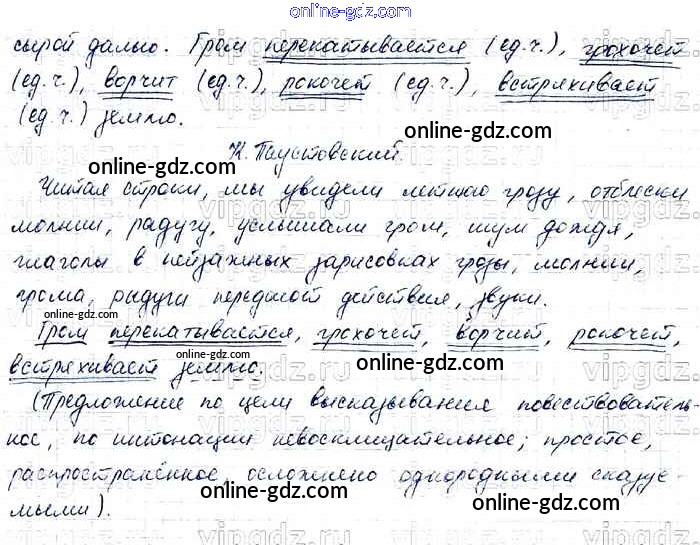 online-gdz.com
сырой далью. Гром перекатывается (ед.ч.), грохочет
(ед.ч.), ворчит (ед.ч.), рокочет (ед.ч.), встряхивает
(ед.ч.) землю.
К. Паустовский.
Читая строки, мы увидели летнюю грозу, отблески
молнии, радугу, услышали гром, шум дождя,
глаголы в пейзажных зарисовках грозы, молнии,
грома, радуги передают действия, звуки.
Гром перекатывается, грохочет, ворчит, рокочет,
встряхивает землю.
(Предложение по цели высказывания повествователь-
ное, по интонации невосклицательное; простое,
распространённое, осложнено однородными сказуе-
мыми).